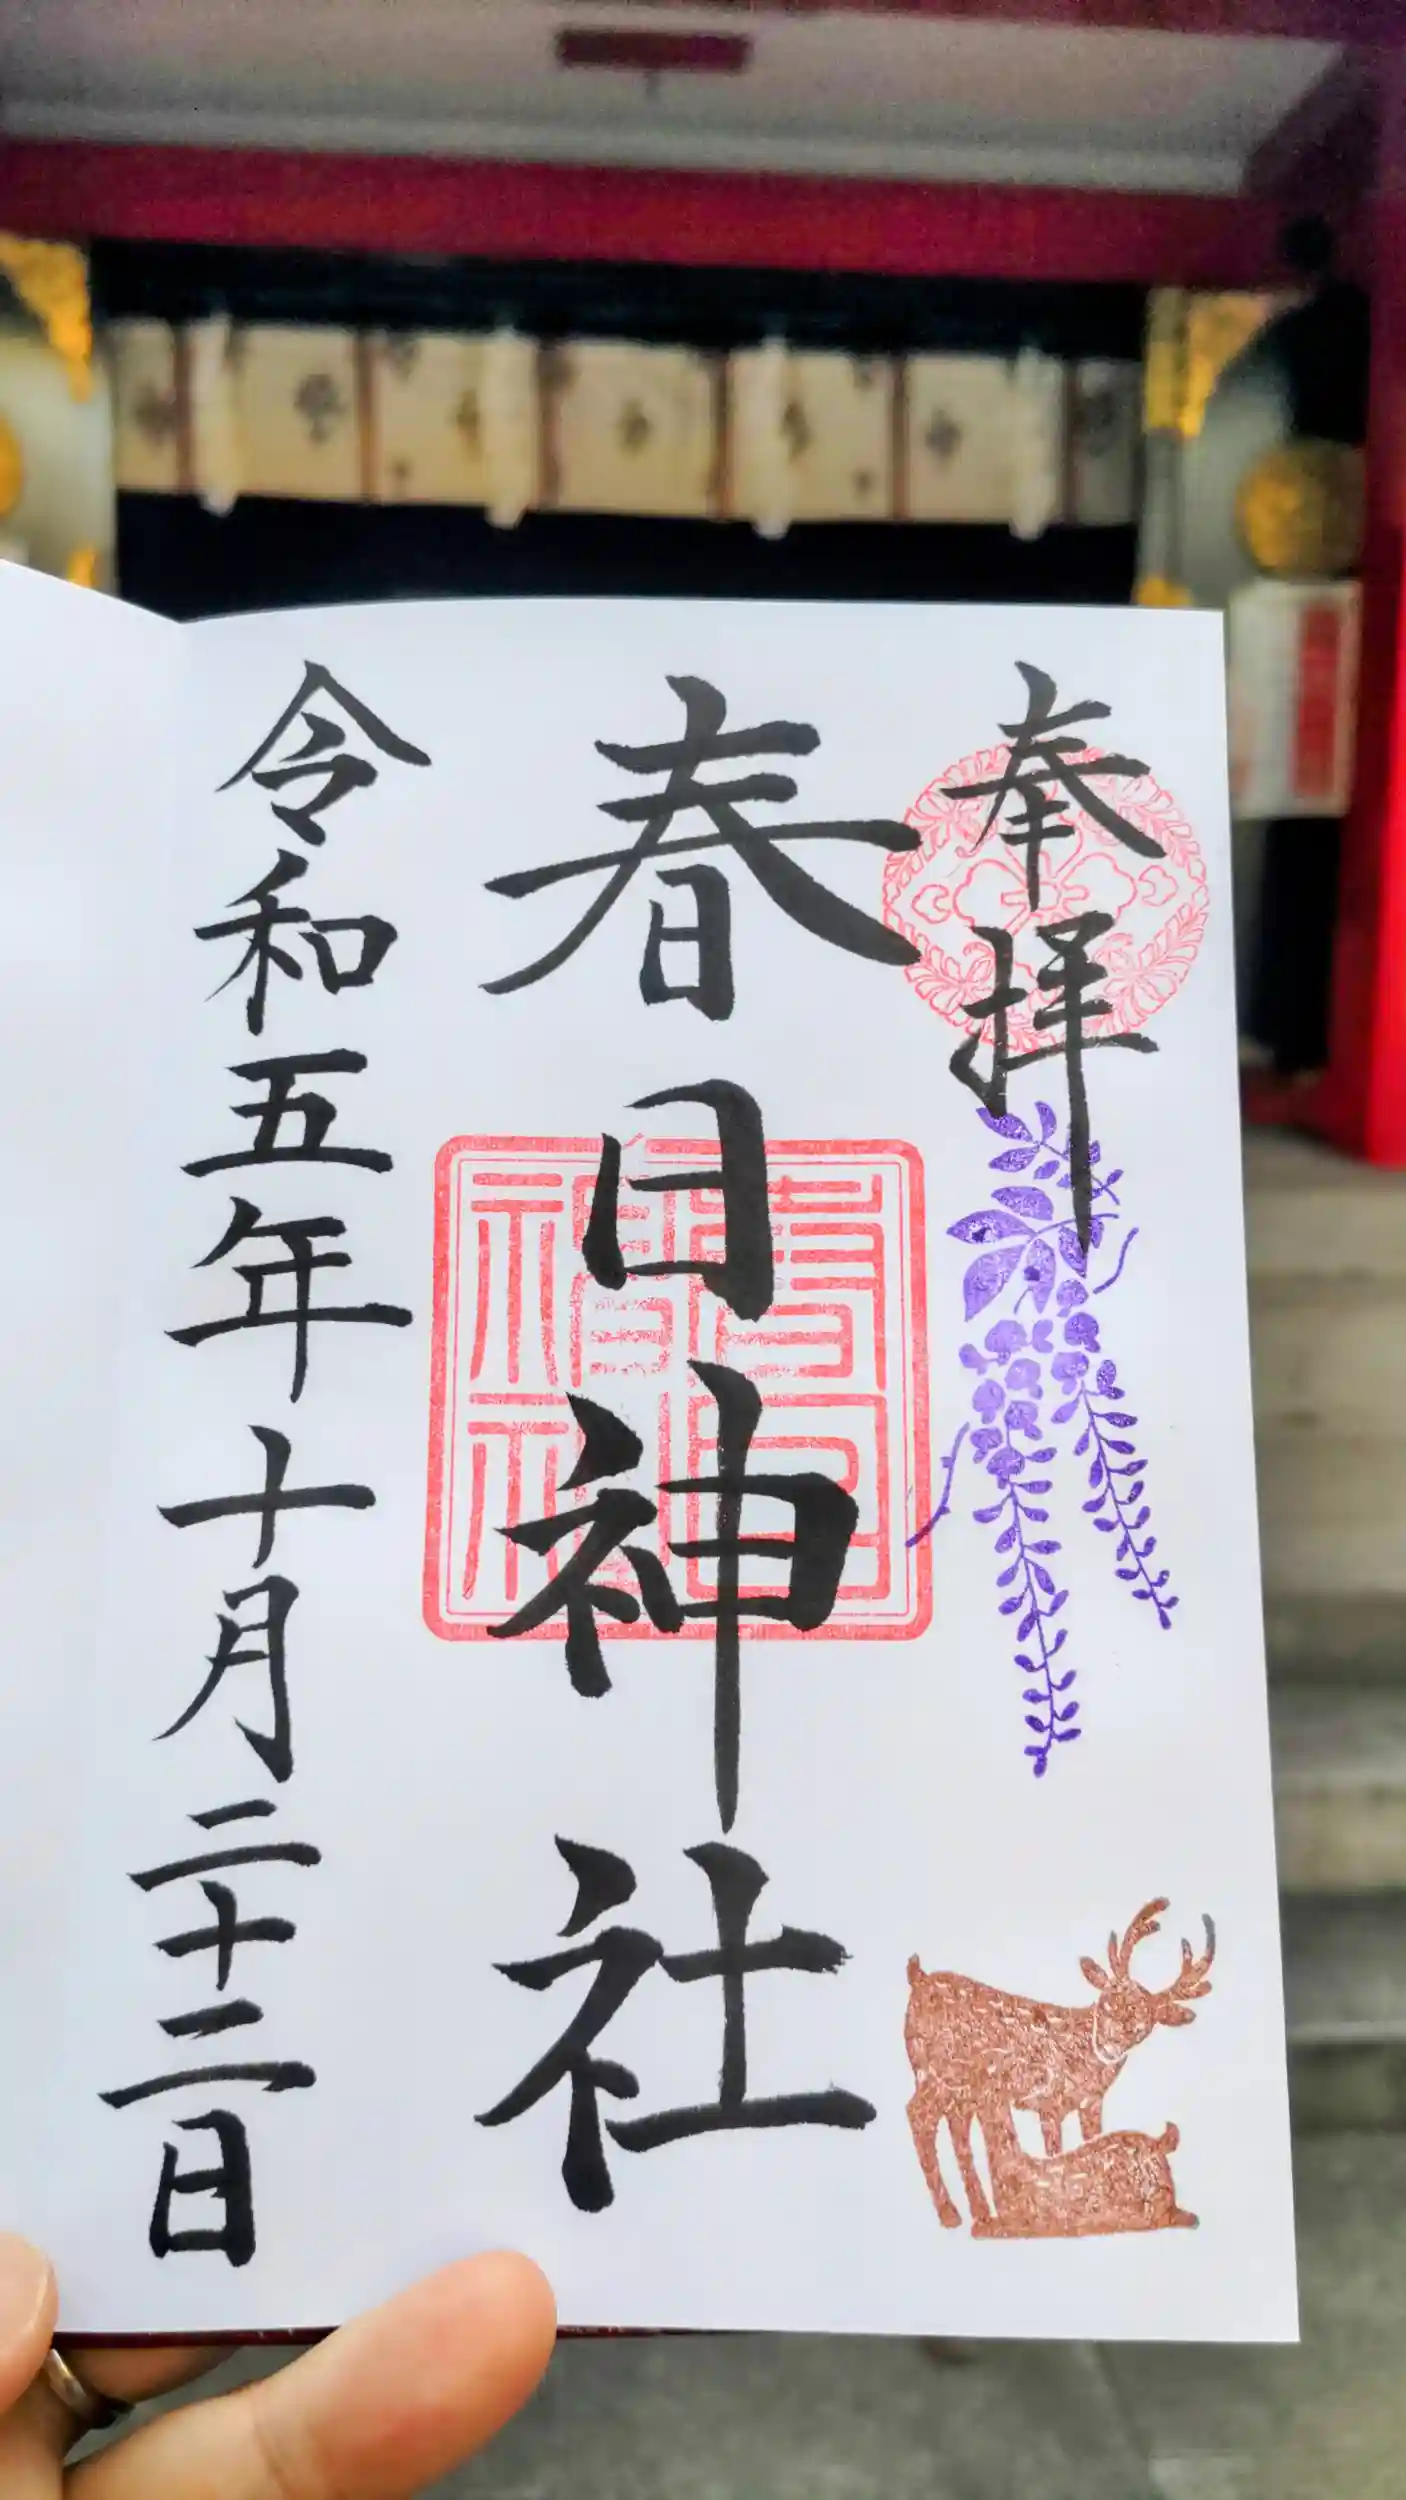 奉拝
春日神社
春日神社
令和五年十月二十二日